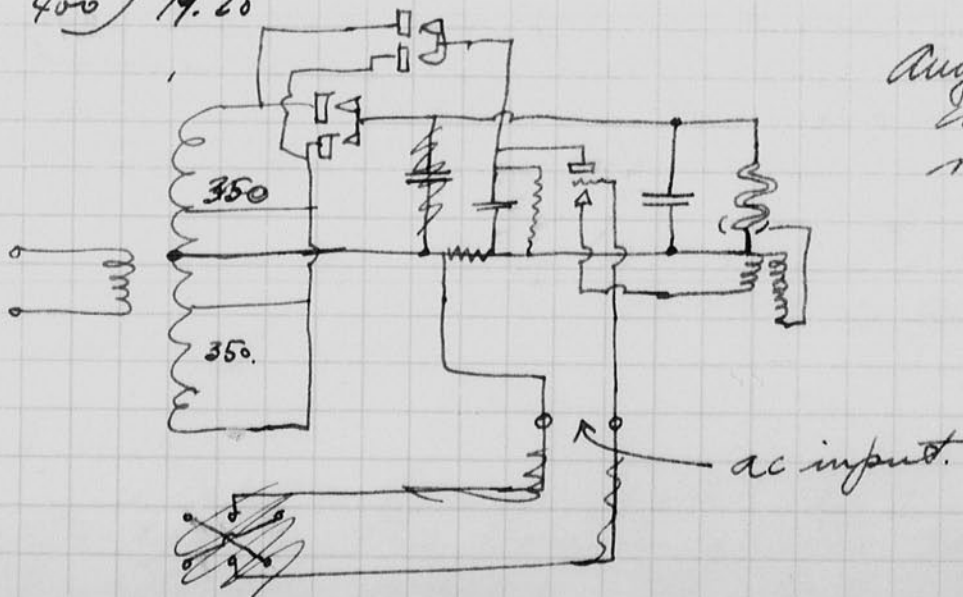 400) 19.20
Aug
350
350.
ac input.